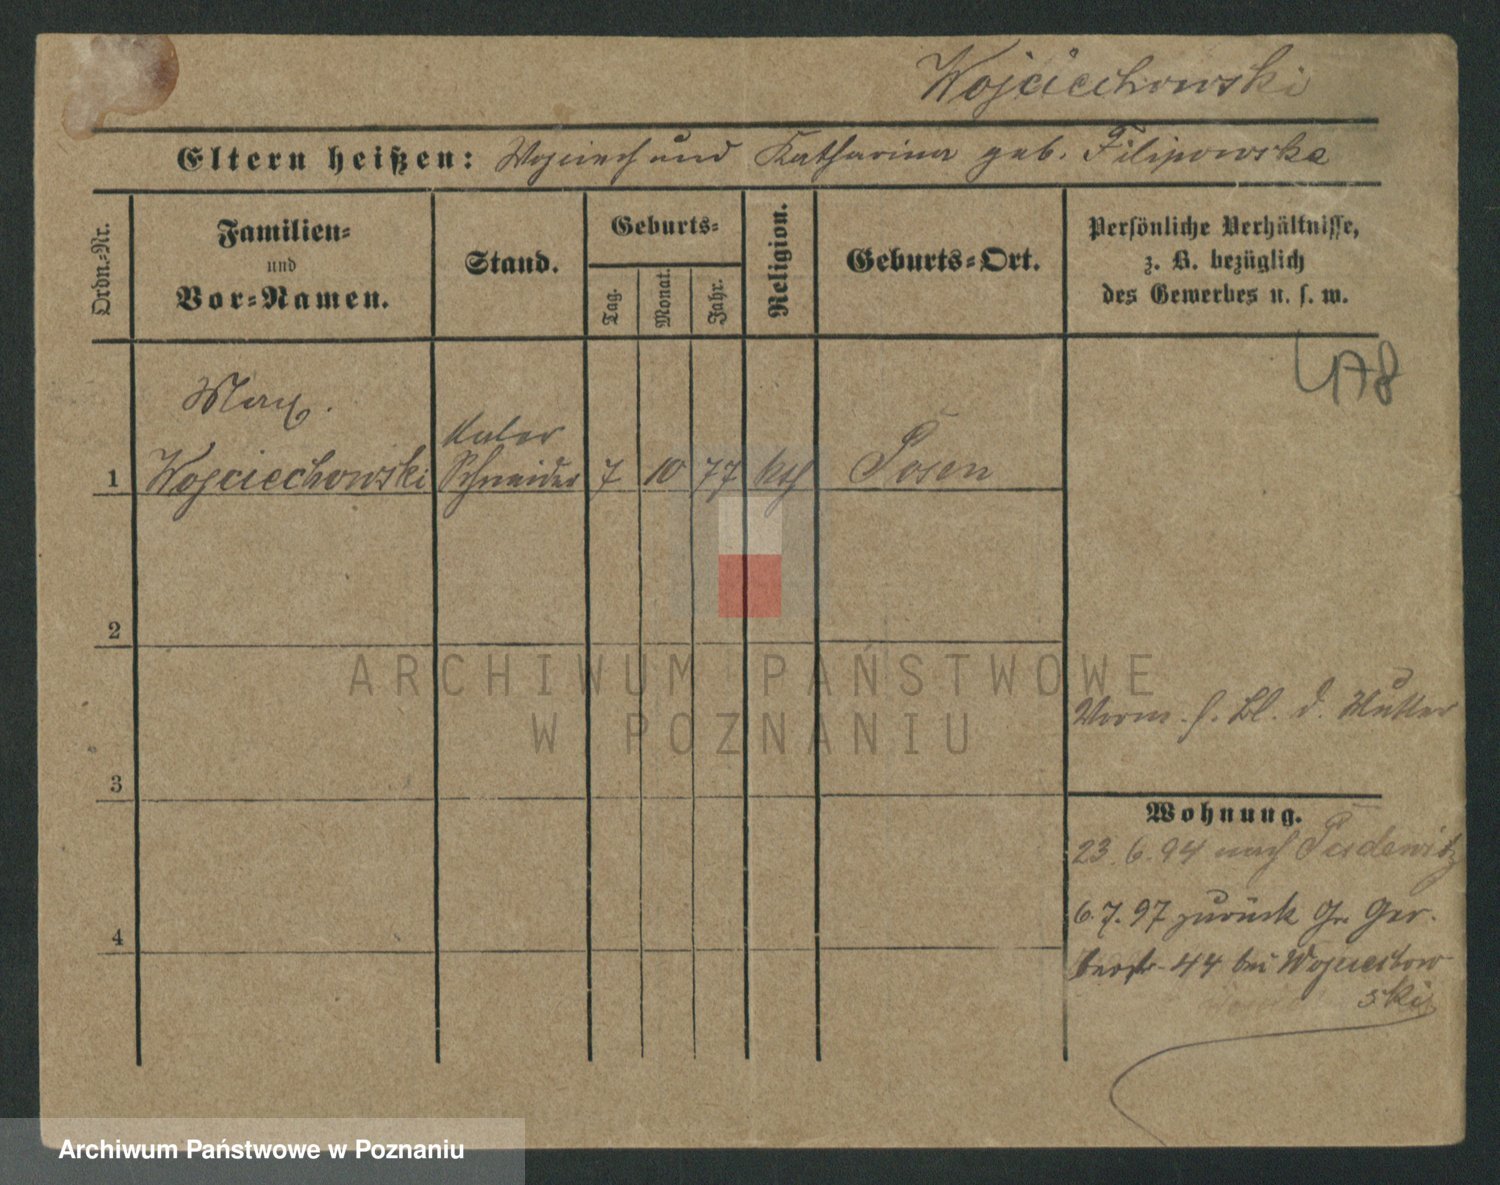 Wojciechowski
Eltern heißen: Wojciech und Katharina geb. Filipowska
Ordn.-Nr.
Familien-
und
Vor-Namen.
Stand.
Geburts-
Tag.
Monat.
Jahr.
Religion.
Geburts-Ort.
Persönliche Verhältnisse,
z. B. bezüglich
des Gewerbes u. s. w.
478
Max.
Maler
1 Wojciechowski Schneider 7 10 77 kth Posen
2
ARCHIWUM PAŃSTWOWE
W POZNANIU
Vorm. s. Bl. d. Mutter
3
Wohnung.
23.6.94 nach Pudewitz
6.7.97 zurück Gr. Ger-
4
berstr. 44 bei Wojciechow-
ski
Archiwum Państwowe w Poznaniu